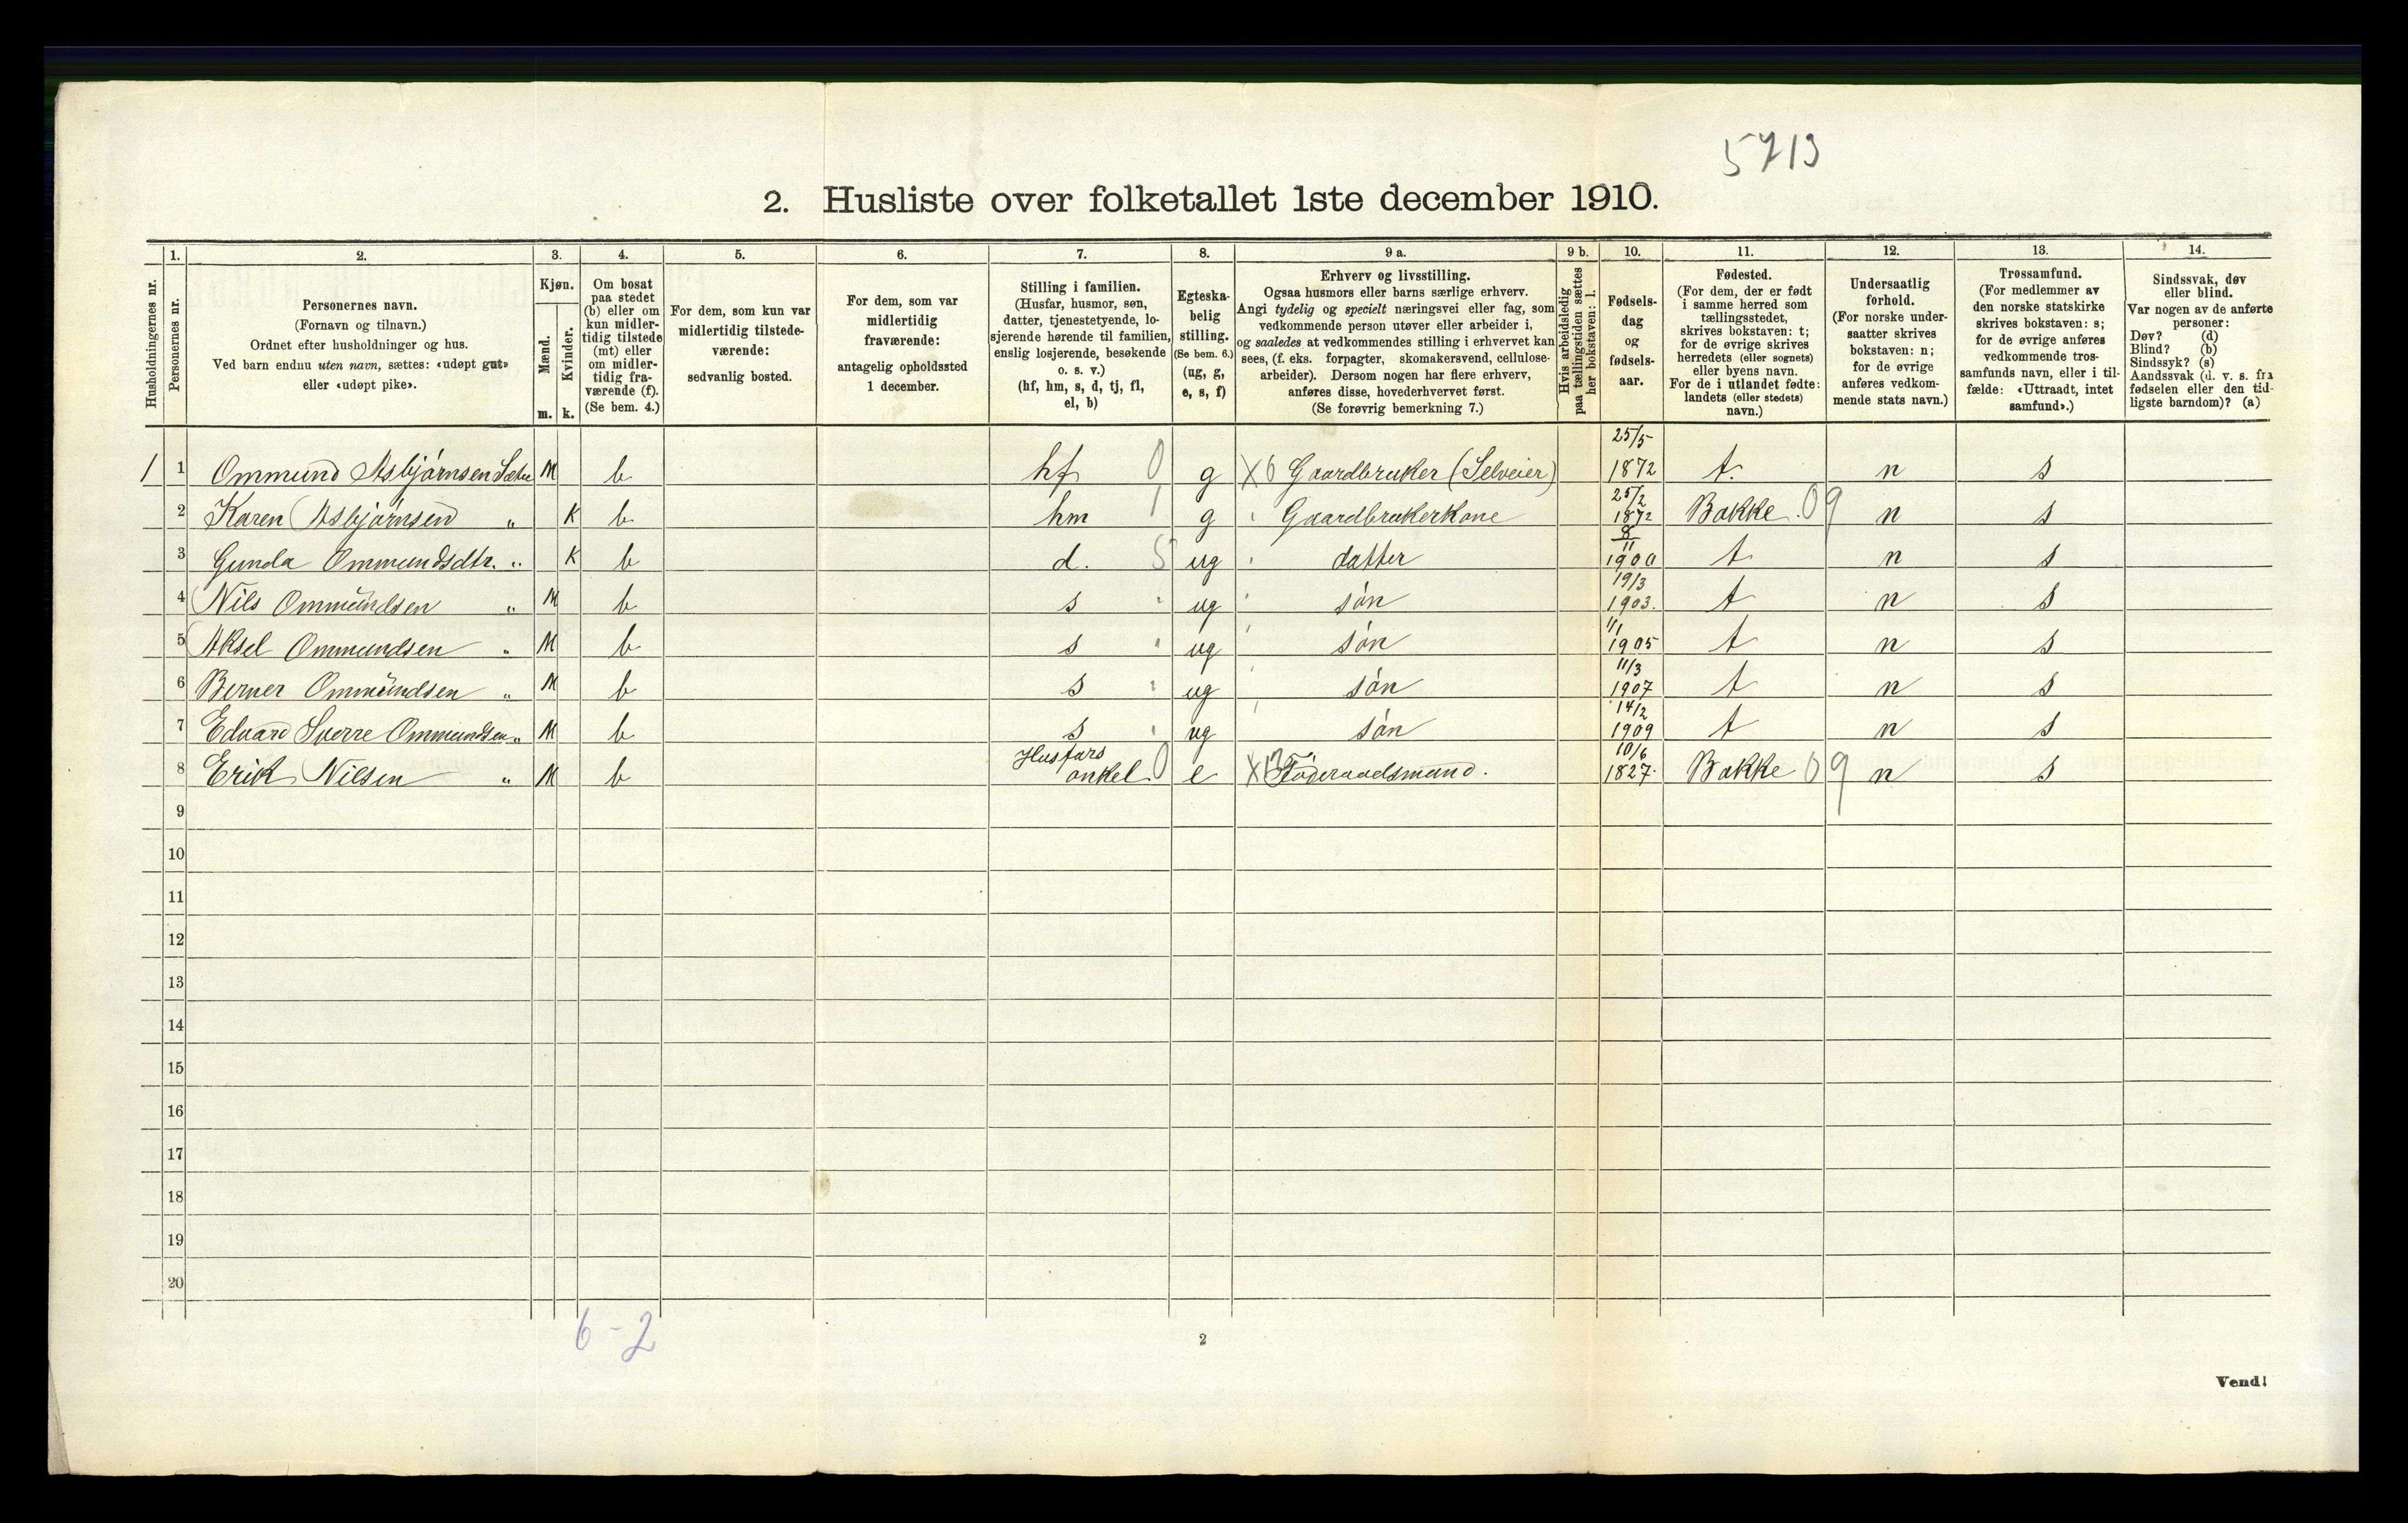 5713
2. Husliste over folketallet 1ste december 1910.
Husholdningernes nr.
1.
Personernes nr.
2.
Personernes navn.
(Fornavn og tilnavn.)
Ordnet efter husholdninger og hus.
Ved barn endnu uten navn, sættes: «udøpt gut»
eller «udøpt pike».
3.
Kjøn.
Mænd.
m.
Kvinder.
k.
4.
Om bosat
paa stedet
(b) eller om
kun midler-
tidig tilstede
(mt) eller
om midler-
tidig fra-
værende (f).
(Se bem. 4.)
5.
For dem, som kun var
midlertidig tilstede-
værende:
sedvanlig bosted.
6.
For dem, som var
midlertidig
fraværende:
antagelig opholdssted
1 december.
7.
Stilling i familien.
(Husfar, husmor, søn,
datter, tjenestetyende, lo-
sjerende hørende til familien,
enslig losjerende, besøkende
o. s. v.)
(hf, hm, s, d, tj, fl,
el, b)
8.
Egteska-
belig
stilling.
(Se bem. 6.)
(ug, g,
e, s, f)
9 a.
Erhverv og livsstilling.
Ogsaa husmors eller barns særlige erhverv.
Angi tydelig og specielt næringsvei eller fag, som
vedkommende person utøver eller arbeider i,
og saaledes at vedkommendes stilling i erhvervet kan
sees, (f. eks. forpagter, skomakersvend, cellulose-
arbeider). Dersom nogen har flere erhverv,
anføres disse, hovederhvervet først.
(Se forøvrig bemerkning 7.)
9 b.
Hvis arbeidsledig
paa tællingstiden sættes
her bokstaven: l.
10.
Fødsels-
dag
og
fødsels-
aar.
11.
Fødested.
(For dem, der er født
i samme herred som
tællingsstedet,
skrives bokstaven: t;
for de øvrige skrives
herredets (eller sognets)
eller byens navn.
For de i utlandet fødte:
landets (eller stedets)
navn.)
12.
Undersaatlig
forhold.
(For norske under-
saatter skrives
bokstaven: n;
for de øvrige
anføres vedkom-
mende stats navn.)
13.
Trossamfund.
(For medlemmer av
den norske statskirke
skrives bokstaven: s;
for de øvrige anføres
vedkommende tros-
samfunds navn, eller i til-
fælde: «Uttraadt, intet
samfund».)
14.
Sindssvak, døv
eller blind.
Var nogen av de anførte
personer:
Døv? (d)
Blind? (b)
Sindssyk? (s)
Aandssvak (d. v. s. fra
fødselen eller den tid-
ligste barndom)? (a)
1 1 Ommund Asbjørnsen M b hf 0 g X6 Gaardbruker (Selveier) 25/5 1872 t. n s
2 Karen Asbjørnsen " K b hm 1 g Gaardbrukerkone 25/2 1872 Bakke 09 n s
3 Gunda Ommundsdtr. " K b d. 5 ug datter 8/11 1900 t n s
4 Nils Ommundsen " M b s ug søn 19/3 1903. t n s
5 Aksel Ommundsen " M b s ug søn 1/1 1905 t n s
6 Berner Ommundsen " M b s ug søn 11/3 1907 t n s
7 Edvard Sverre Ommundsen " M b s ug søn 14/2 1909 t n s
8 Erik Nilsen " M b Husfars onkel 0 e Føderaadsmand. 10/6 1827. Bakke 09 n s
9
10
11
12
13
14
15
16
17
18
19
20
6-2
2
Vend!